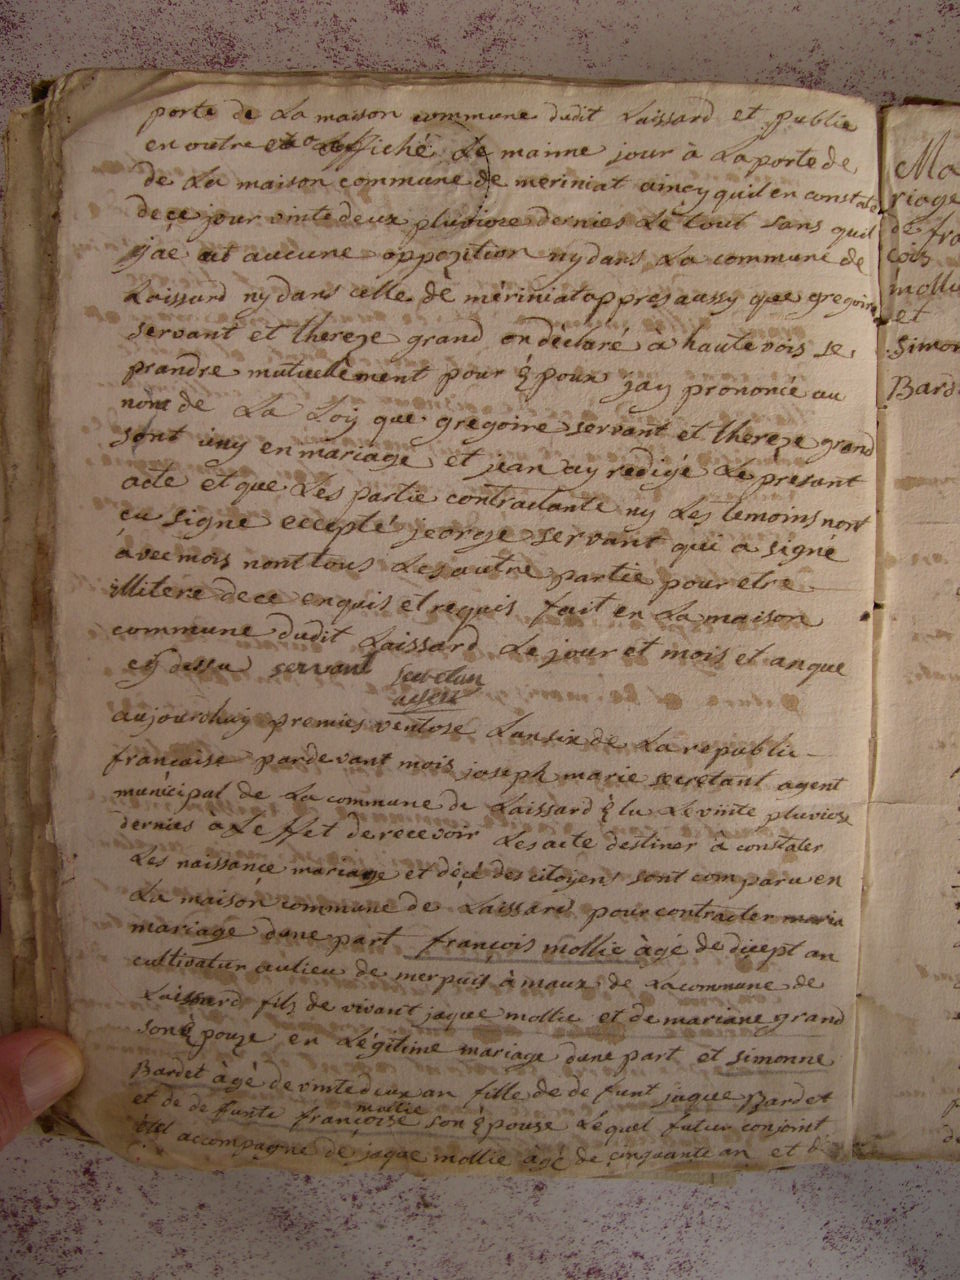 porte de La maison commune dudit Laissard et publie
en outre et affiché Le mainne jour à La porte de
de La maison commune de meriniat aincy quil en constate
de ce jour vinte deux pluviose dernies Le tout sans quil
jaë ait aucune opposition ny dans La commune de
Laissard ny dans celle de mériniat oppres aussy que gregoire
servant et thereze grand on déclaré à haute vois se
prandre mutuellement pour Epoux jay prononcé au
nom de La Loy que gregoire servant et thereze grand
sont uny en mariage et jean ay redigé Le presant
acte et que Les partie contractante ny Les temoins nont
cu signe eccepté jeorge servant qui a signé
avec mois nont tous Les autre partie pour etre
illitere de ce enquis et requis fait en La maison
commune dudit Laissard Le jour et mois et an que
cy dessu servant Secretan
agent
aujourdhuy premies ventose Lan six de La republi-
francaise pardevant mois joseph marie secretant agent
municipal de La commune de Laissard Elu Le vinte pluviose
dernies à Leffet de recevoir Les acte destiner à constater
Les naissance mariage et décé des citoyens sont comparu en
La maison commune de Laissard pour contracter maria
mariage dune part françois mollie àgé de dicept an
cultivatur au lieu de merpuis à maux de La commune de
Laissard fils de vivant jaque mollie et de mariane grand
son Epouze en Légitime mariage dune part et simonne
Bardet àgé de vinte deux an fille de de funt jaque Bardet
et de de funte françoise mollie son Epouse Léquel futur conjoint
accompagne de jaque mollie àgé de cinquante an et d
Ma
riage
de fra
cois
mollie
et
Simon
Bard